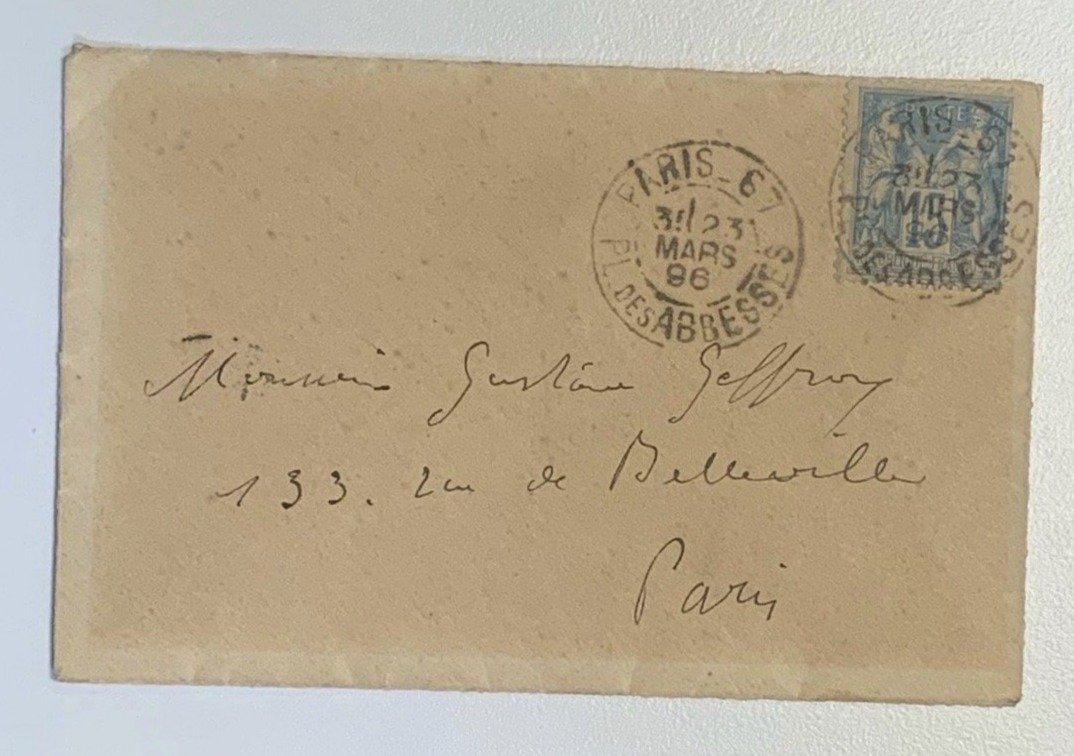 PARIS_67
3E/23
MARS
96
PL. DES ABBESSES
POSTE
PARIS_67
23
MARS
96
PL. DES ABBESSES
Monsieur Gustave Geffroy
133. rue de Belleville
Paris